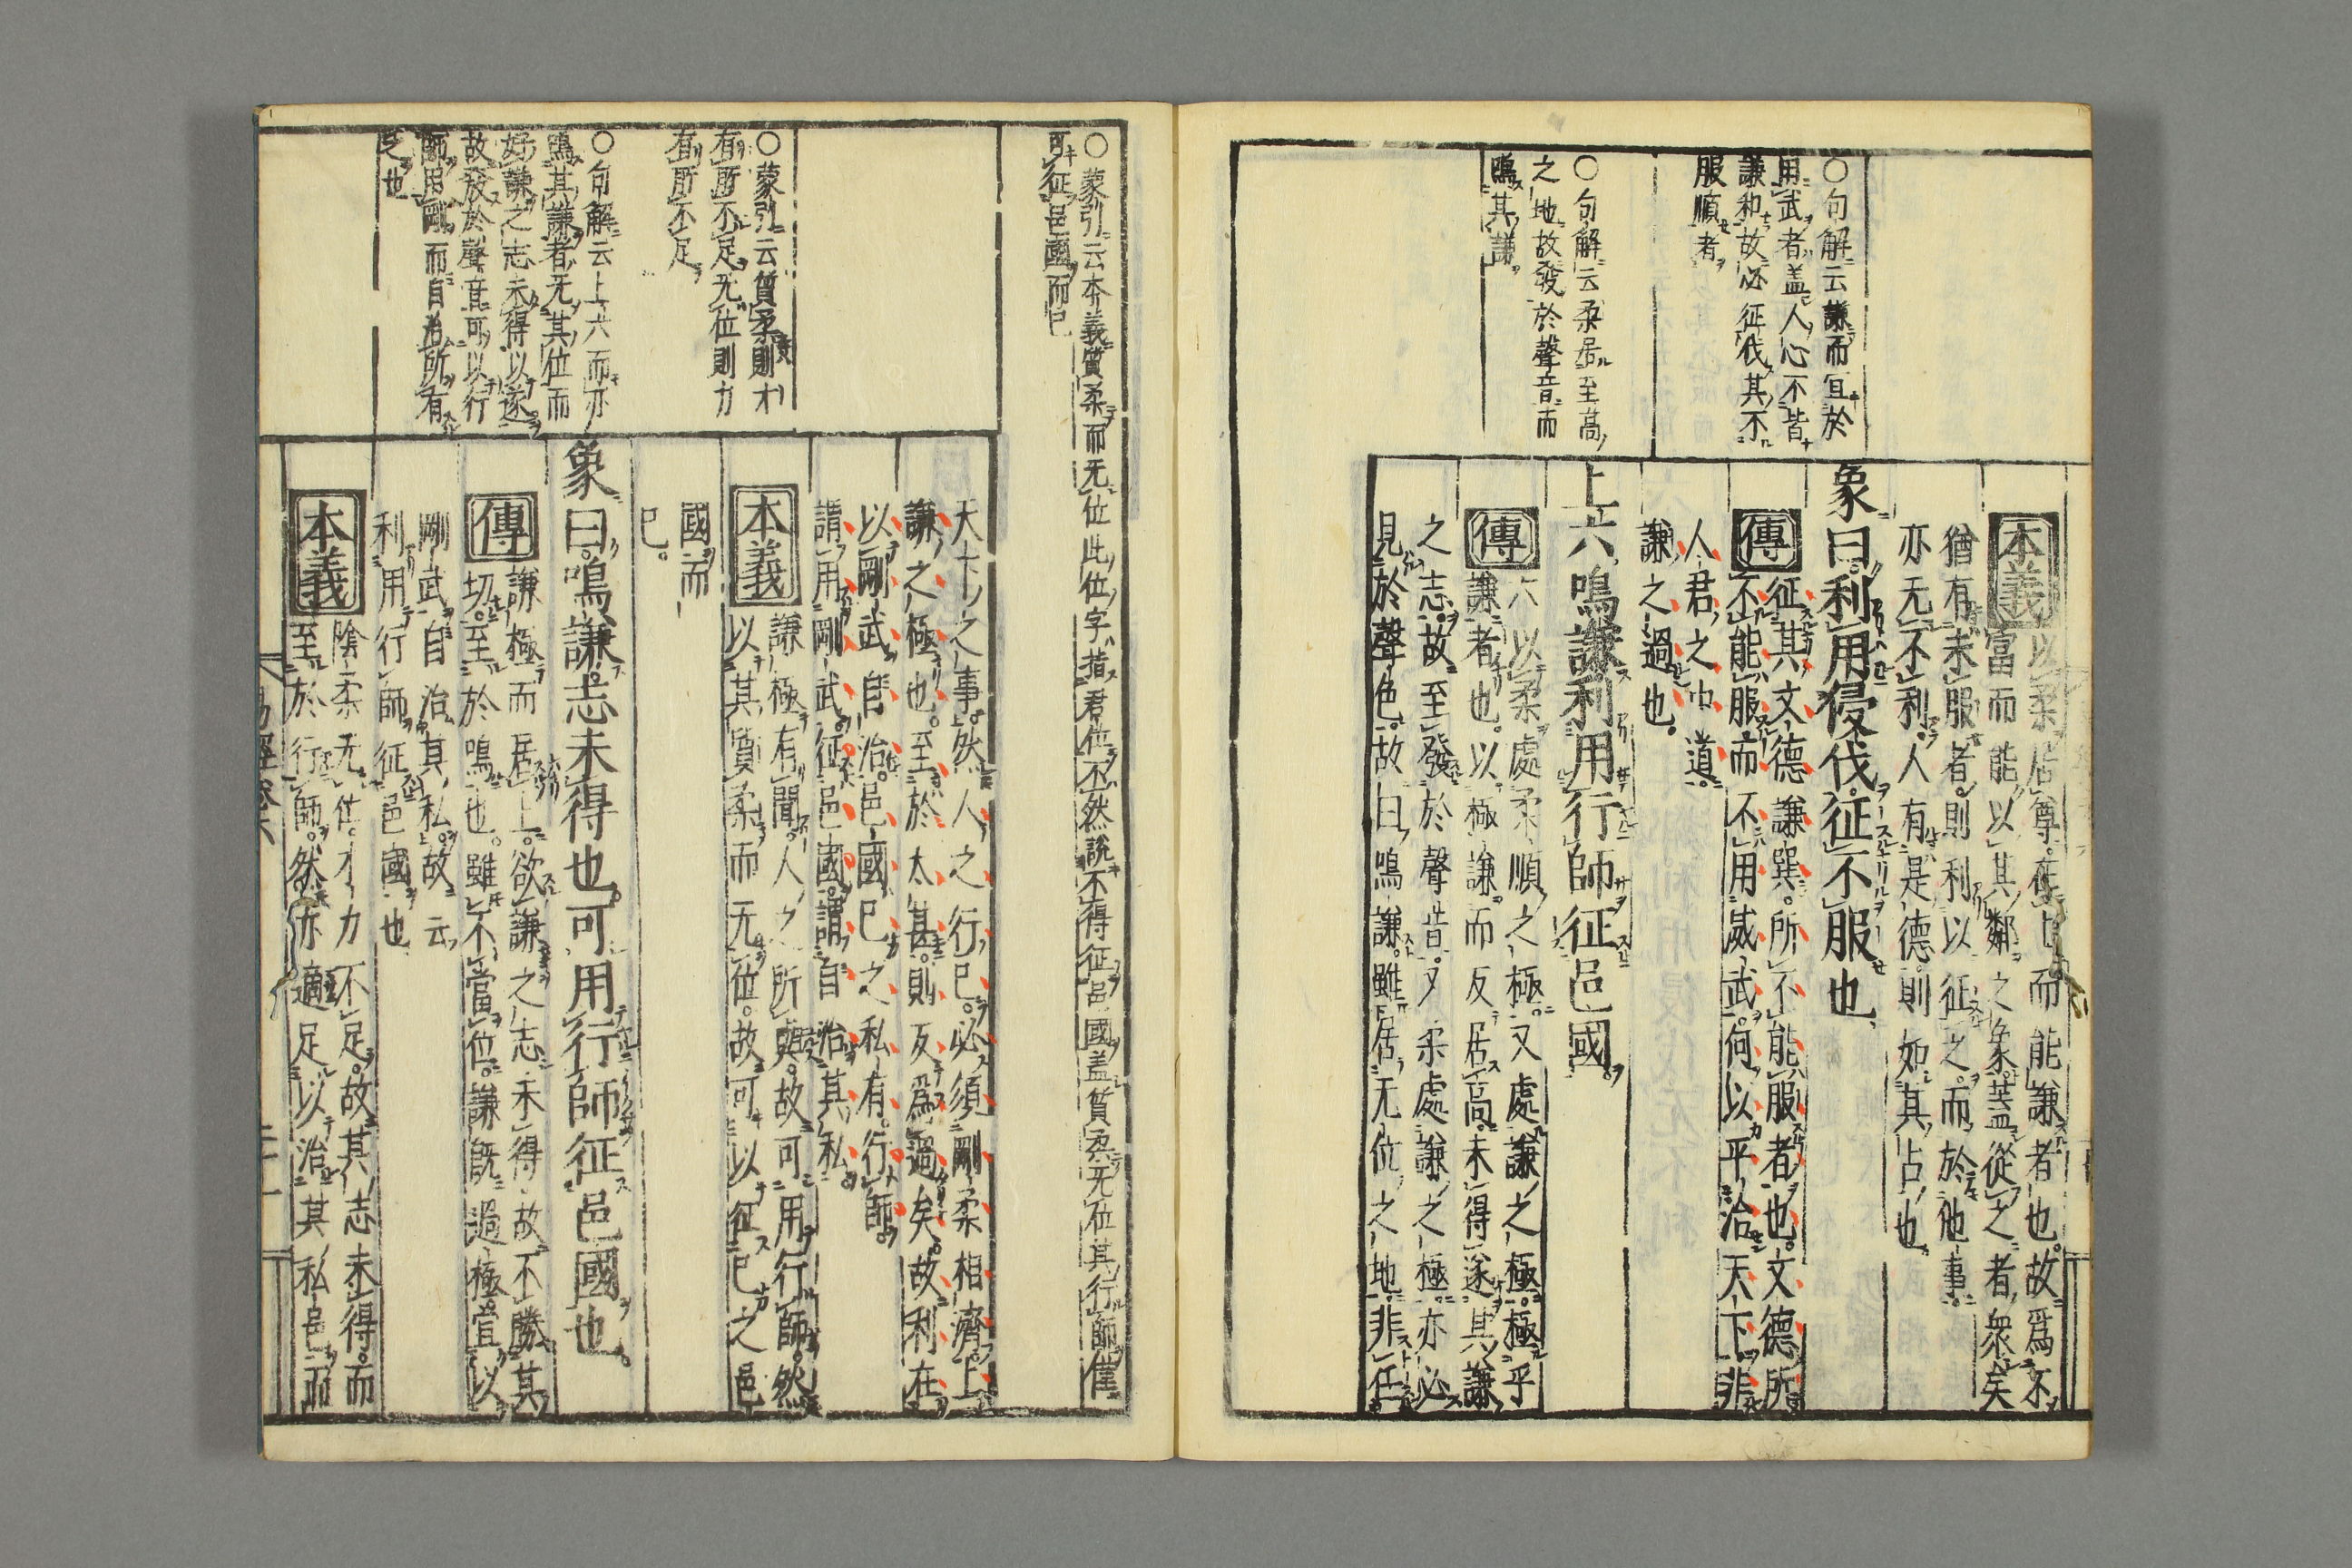 ○句解云謙而宜於
用武者盖人心不皆
謙和故必征伐其不
服順者
○句解云柔居至高
之地故發於聲音而
鳴其謙
本義
以柔居尊在上而能謙者也。故爲不
富而能以其鄰之象。盖從之者衆矣
猶有未服者。則利以征之。而於他事。
亦无不利。人有是德。則如其占也
象曰。利用侵伐。征不服也
傳
征其文德謙巽。所不能服者也。文德所
不能服。而不用威武。何以平治天下。非
人君之中道。
謙之過也。
上六鳴謙。利用行師征邑國。
傳
六以柔處柔順之極。又處謙之極。極乎
謙者也。以極謙。而反居高。未得遂其謙
之志。故至發於聲音。又柔處謙之極。亦必
見於聲色。故曰鳴謙。雖居无位之地。非任
○蒙引云本義質柔而无位此位字指君位不然說不得征邑國盖質柔无位其行師僅
可征邑國而已
○蒙引云質柔則才
有所不足无位則力
有所不足
○句解云上六而亦
鳴其謙者无其位而
好謙之志未得以遂
故發於聲音可以行
師用剛而自治所有
之也
天下之事。然人之行已。必須剛柔相濟。上
謙之極也。至於太甚。則反爲過矣。故利在
以剛武自治。邑國已之私有。行師。
謂用剛武。征邑國。謂自治其私。
本義
謙極有聞。人之所與。故可用行師。然
以其質柔而无位。故可以征已之邑
國而
已。
象曰。鳴謙。志未得也。可用行師征邑國也。
傳
謙極而居上。欲謙之志未得。故不勝其
切。至於鳴也。雖不當位。謙既過極。宜以
剛武自治其私。故云
利用行師征邑國也
本義
陰柔无位。才力不足。故其志未得。而
至於行師。然亦適足以治其私邑而
易經卷六
二十一